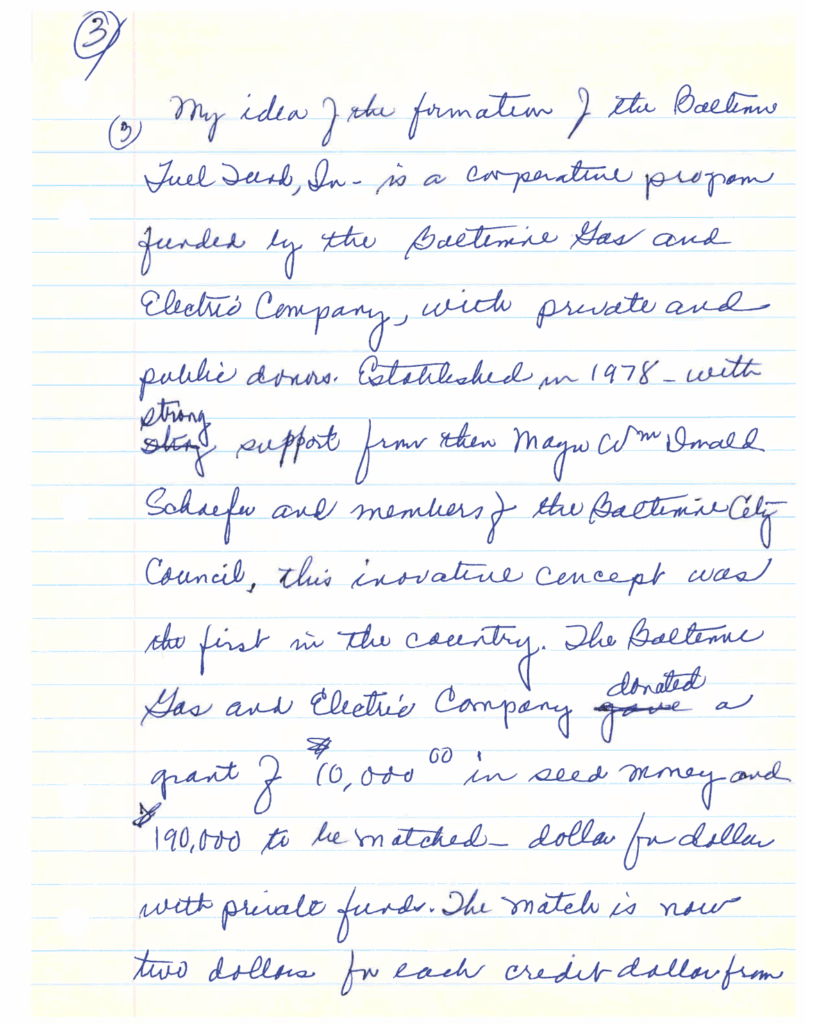 3
(3) My idea of the formation of the Baltimore
Fuel Fund, In- is a cooperative program
funded by the Baltimore Gas and
Electric Company, with private and
public donors. Established in 1978 - with
strong
strong support from then Mayor Wm Donald
Schaefer and members of the Baltimore City
Council, this inovative concept was
the first in the country. The Baltimore
donated
Gas and Electric Company gave a
grant of $10,000 00 in seed money and
$190,000 to be matched - dollar for dollar
with private funds. The match is now
two dollars for each credit dollar from